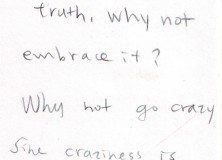 truth, why not
embrace it?
Why not go crazy
craziness is